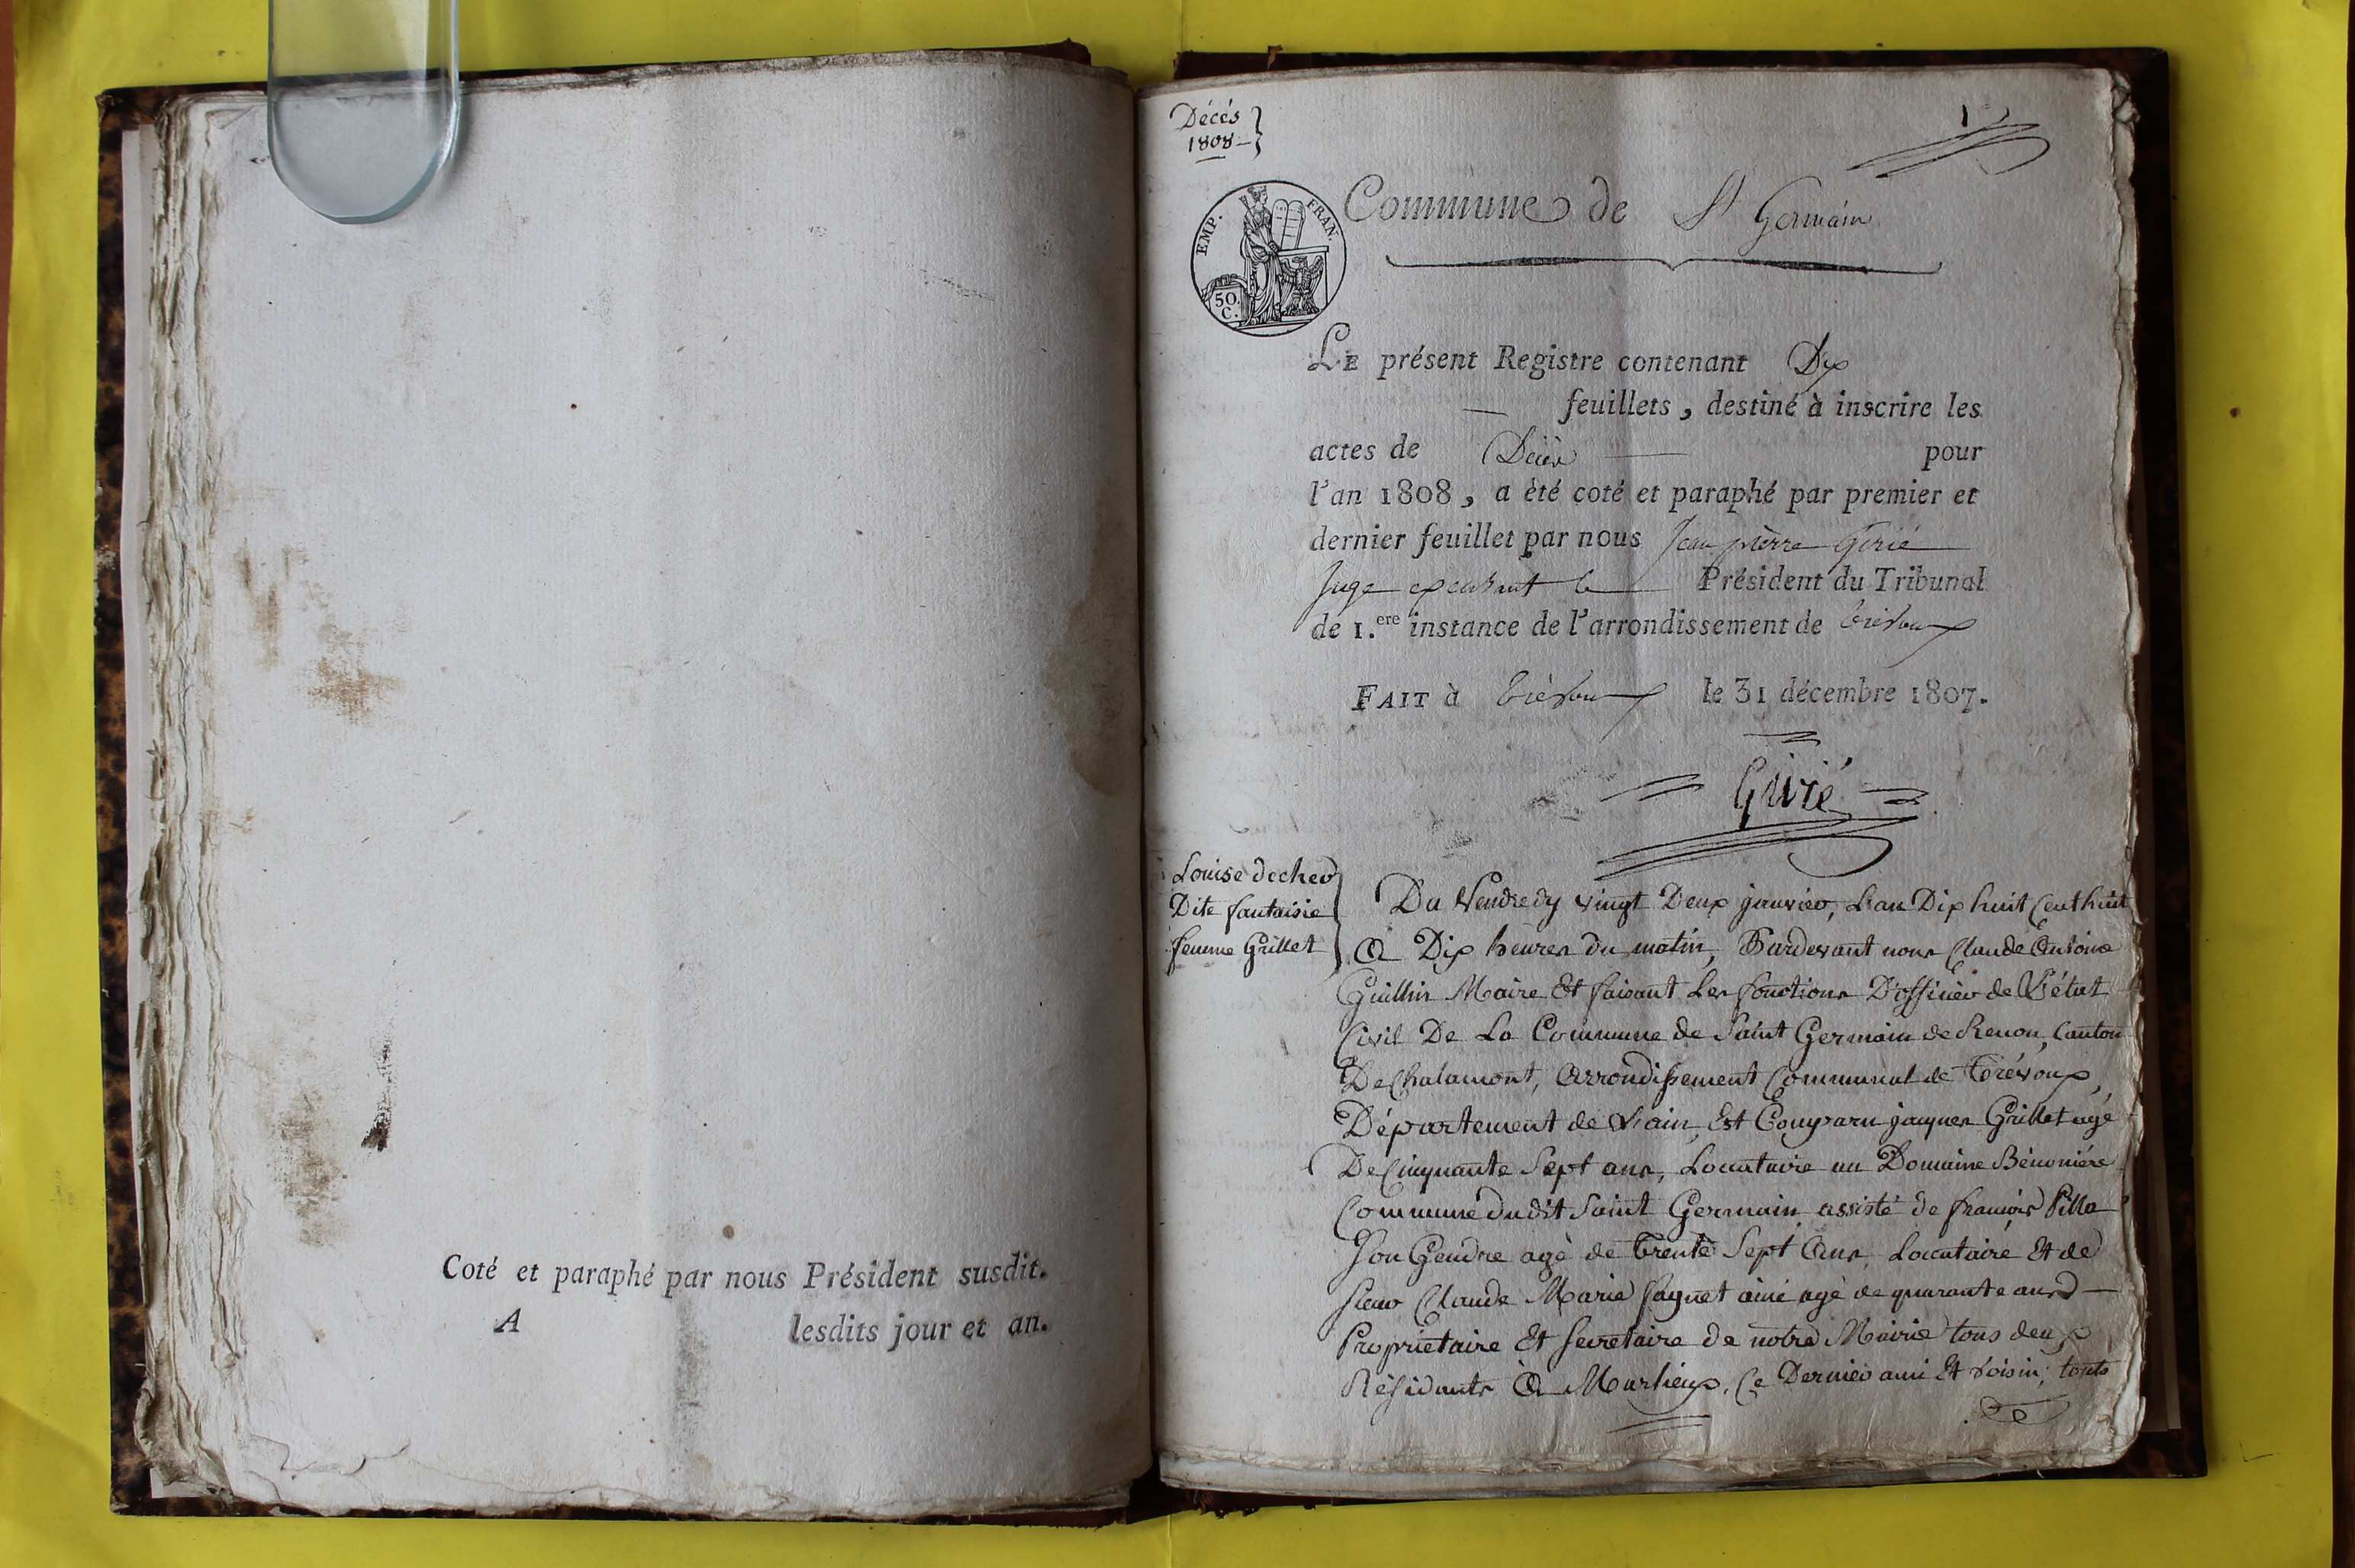 Coté et paraphé par nous Président susdit.
A lesdits jour et an.
Décés
1808
1
EMP. FRAN.
50
C.
Commune de St Germain
LE présent Registre contenant Dix
feuillets, destiné à inscrire les
actes de Décès pour
l'an 1808, a été coté et paraphé par premier et
dernier feuillet par nous Jean pierre Girié
Juge exerçant le Président du Tribunal
de 1.ere instance de l'arrondissement de trévoux
FAIT à trévoux le 31 décembre 1807.
Girié
Louise
Dite fantaisie
femme Grillet
Du Vendredy vingt Deux janvier, L'an Dix huit Cent huit
A Dix heures du matin, Pardevant nous Claude Antoine
Guillin Maire Et faisant Les fonctions D'officier de L'état
Civil De La Commune de Saint Germain de Renon, Canton
De Chalamont, Arrondissement Communal de Trévoux,
Département de L'ain, Est Comparu jacques Grillet agé
De Cinquante Sept ans, Locataire au Domaine Bénonière
Commune dudit Saint Germain assisté de françois Pilla
Son Gendre agé de trente Sept Ans, Locataire Et de
sieur Claude Marie fagnet ainé agé de quarante ans
Propriétaire Et Secretaire de notre Mairie tous deux
Résidants A Marlieux, Ce Dernier ami Et voisin; touts